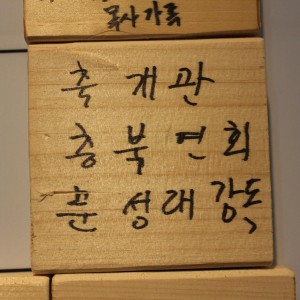 목사가족
축 개관
충북연회
윤성래 감독